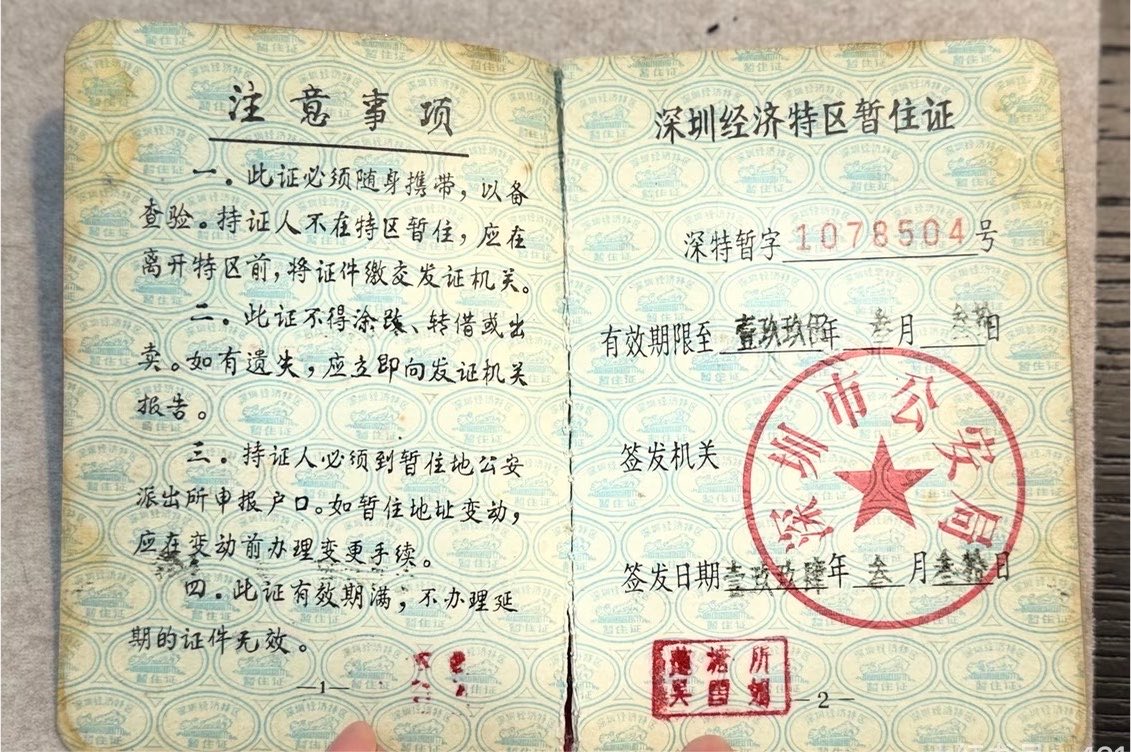 注意事项
一。此证必须随身携带，以备
查验。持证人不在特区暂住，应在
离开特区前，将证件缴交发证机关。
二。此证不得涂改、转借或出
卖。如有遗失，应立即向发证机关
报告。
三。持证人必须到暂住地公安
派出所申报户口。如暂住地址变动，
应在变动前办理变更手续。
四。此证有效期满，不办理延
期的证件无效。
—1—
深圳经济特区暂住证
深特暂字1078504号
有效期限至 壹玖玖 年 叁月 叁拾日
签发机关
深圳市公安局
签发日期壹玖玖陆年 叁月叁拾日
塘所
吴
—2—